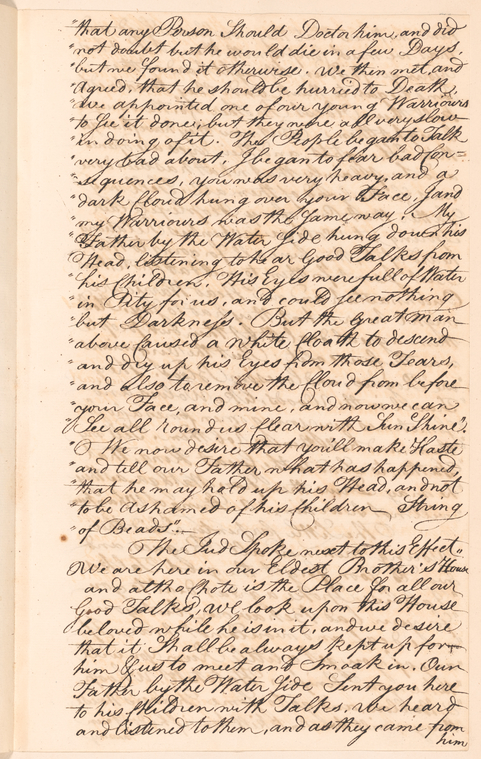 "that any Person Should Doctor him, and did
"not doubt but he would die in a few Days,
"but we found it otherwise. We then met, and
"agreed, that he should be hurried to Death,
"we appointed one of our young Warriours
"to See it done; but they were all very slow
"in doing of it. The People began to talk
"very bad about, I began to fear bad Con=
"sequences, you was very heavy, and a
"dark Cloud hung over your Face, I and
"my Warriours was the Same way. My
"Father by the Water Side hung down his
"Head, listening to hear Good Talks from
"his Children. His Eyes were full of Water
"in Pity for us, and could see nothing
"but Darkness. But the Great man
"above Caused a white Cloath to descend
"and dry up his Eyes from those Tears,
"and also to remove the Cloud from before
"your Face, and mine, and now we can
"See all 'round us Clear with Sun Shine".
"We now desire that you'll make Haste
"and tell our Father what has happened,
"that he may hold up his Head, and not
"to be ashamed of his Children String
"of Beads".—
The Jud Spoke next to this Effect "
We are here in our Eldest Brother's House
and at tha Chote is the Place for all our
Good Talks, we look upon this House
beloved while he is in it, and we desire
that it Shall be always kept up for
him & us to meet and Smoak in. Our
Father by the Water Side Sent you here
to his Children with Talks, we heard
and listened to them, and as they came from
him